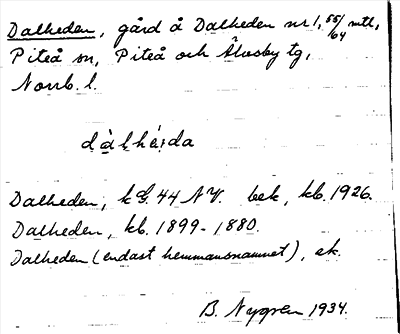 Dalheden, gård å Dalheden nr 1, 55/64 mtl,
Piteå sn, Piteå och Älvsby tg,
Norrb. l.
dàlhéːda
Dalheden, kG. 44 NV. bek, kb. 1926.
Dalheden, kb. 1899-1880.
Dalheden (endast hemmansnamnet), ek.
B. Nygren 1934.